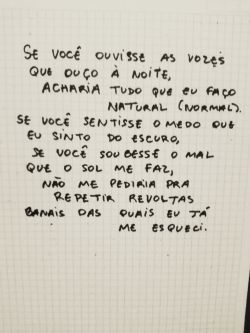 SE VOCÊ OUVISSE AS VOZES
QUE OUÇO À NOITE,
ACHARIA TUDO QUE EU FAÇO
NATURAL (NORMAL).
SE VOCÊ SENTISSE O MEDO QUE
EU SINTO DO ESCURO,
SE VOCÊ SOUBESSE O MAL
QUE O SOL ME FAZ,
NÃO ME PEDIRIA PRA
REPETIR REVOLTAS
BANAIS DAS QUAIS EU JÁ
ME ESQUECI.